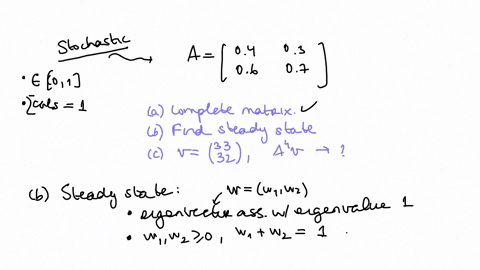 Stochastic
• ∈ [0,1]
• Σcols = 1
A = [ 0.4 0.3
0.6 0.7 ]
(a) Complete matrix. ✓
(b) Find steady state
(c) v = (33 32), A⁴v → ?
(b) Steady state:
w = (w₁, w₂)
• eigenvector ass. w/ eigenvalue 1
• w₁, w₂ ≥ 0, w₁ + w₂ = 1.